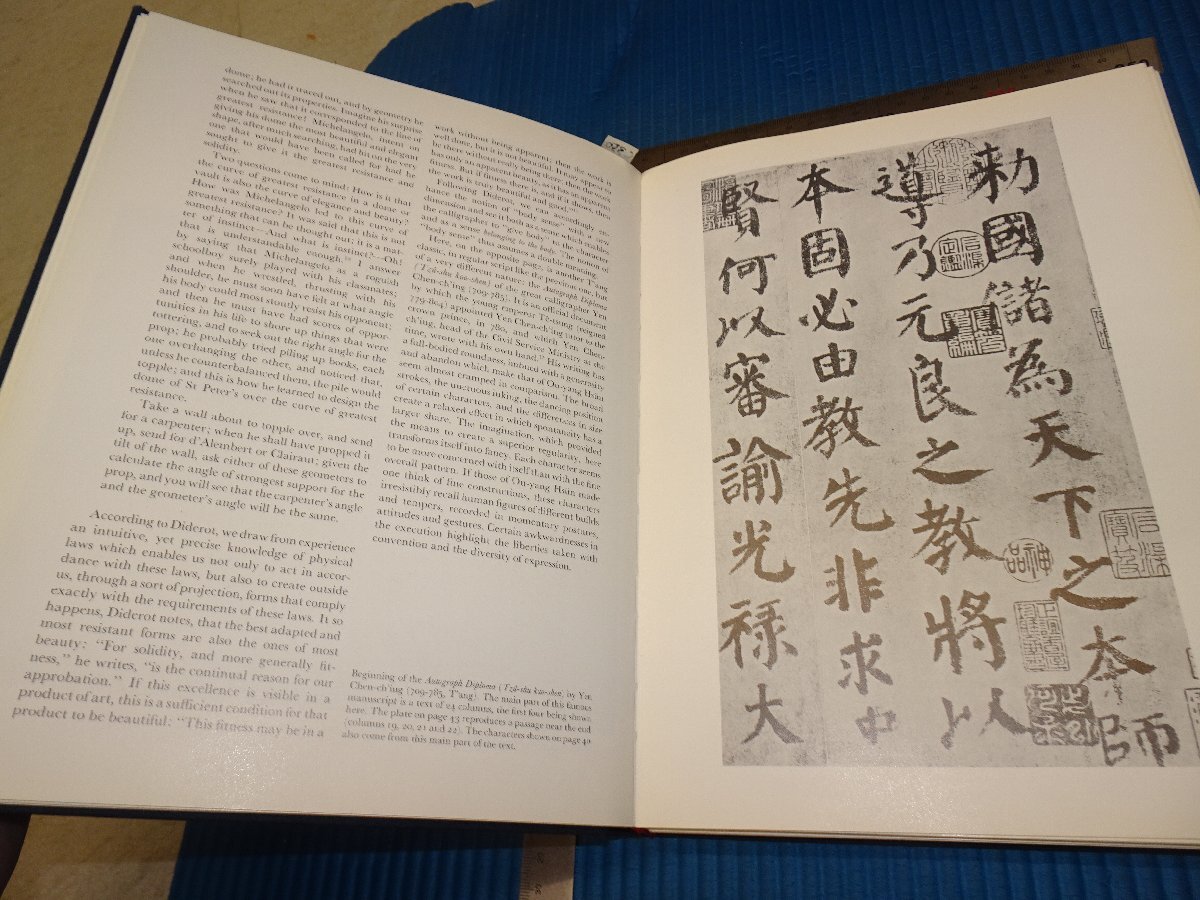 dome; he had it traced out, and by geometry he
searched out its properties. Imagine his surprise
when he saw that it corresponded to the line of
greatest resistance! Michelangelo, intent on
giving his dome the most beautiful and elegant
shape, after much searching, had hit on the very
one that would have been called for had he
sought to give it the greatest resistance and
solidity.
Two questions come to mind: How is it that
the curve of greatest resistance in a dome or
vault is also the curve of elegance and beauty?
How was Michelangelo led to this curve of
greatest resistance? It was said that this is not
something that can be thought out; it is a mat-
ter of instinct—And what is instinct?—Oh,
that is understandable enough." I answer
by saying that Michelangelo as a roguish
schoolboy surely played with his classmates;
and when he wrestled, thrusting with his
shoulder, he must soon have felt at what angle
his body could most stoutly resist his opponent;
and then he must have had scores of oppor-
tunities in his life to shore up things that were
tottering, and to seek out the right angle for the
prop; he probably tried piling up books, each
one overhanging the other, and noticed that,
unless he counterbalanced them, the pile would
topple; and this is how he learned to design the
dome of St Peter's over the curve of greatest
resistance.
Take a wall about to topple over, and send
for a carpenter; when he shall have propped it
up, send for d'Alembert or Clairaut; given the
tilt of the wall, ask either of these geometers to
calculate the angle of strongest support for the
prop, and you will see that the carpenter's angle
and the geometer's angle will be the same.
According to Diderot, we draw from experience
an intuitive, yet precise knowledge of physical
laws which enables us not only to act in accor-
dance with these laws, but also to create outside
us, through a sort of projection, forms that comply
exactly with the requirements of these laws. It so
happens, Diderot notes, that the best adapted and
most resistant forms are also the ones of most
beauty: "For solidity, and more generally fit-
ness," he writes, "is the continual reason for our
approbation." If this excellence is visible in a
product of art, this is a sufficient condition for that
product to be beautiful: "This fitness may be in a
work without being apparent; then the work is
well done, but it is not beautiful. It may appear to
be there without really being there; then the work
has only an apparent beauty, as it has an apparent
fitness. But if fitness is really there, then
the work is truly beautiful and good."
Following Diderot, we can accordingly en-
hance the notion of "body sense" with a new
dimension and see it both as a sense which enables
the calligrapher to "give body" to the character
and as a sense belonging to the body. The notion of
"body sense" thus assumes a double meaning.
Here, on the opposite page, is another T'ang
classic, in regular script like the previous one, but
of a very different nature: the Autograph Diploma
(Tzŭ-shu kao-shen) of the great calligrapher Yen
Chen-ch'ing (709-785). It is an official document
by which the emperor Tê-tsung (reigned
779-804) appointed Yen Chen-ch'ing tutor to the
crown prince, in 780, and which Yen Chen-
ch'ing, head of the Civil Service Ministry at the
time, wrote with his own hand. His writing has
a full-bodied roundness, imbued with a generosity
and abandon which make that of Ou-yang Hsün
seem almost cramped in comparison. The broad
strokes, the unctuous inking, the dancing position
of certain characters, and the differences in size
create a relaxed effect in which spontaneity has a
larger share. The imagination, which provided
the means to create a superior regularity, here
transforms itself into fancy. Each character seems
to be more concerned with itself than with the fine
overall pattern. If those of Ou-yang Hsün made
one think of fine constructions, these characters
irresistibly recall human figures of different builds
and tempers, recorded in momentary postures,
attitudes and gestures. Certain awkwardnesses in
the execution highlight the liberties taken with
convention and the diversity of expression.
Beginning of the Autograph Diploma (Tzŭ-shu kao-shen) by Yen
Chen-ch'ing (709-785, T'ang). The main part of this famous
manuscript is a text of 24 columns, the first four being shown
here. The plate on page 43 reproduces a passage near the end
(columns 19, 20, 21 and 22). The characters shown on page 42
also come from this main part of the text.
勅國儲為天下之本師
導乃元良之教將以
本固必由教先非求中
賢何以審諭光祿大